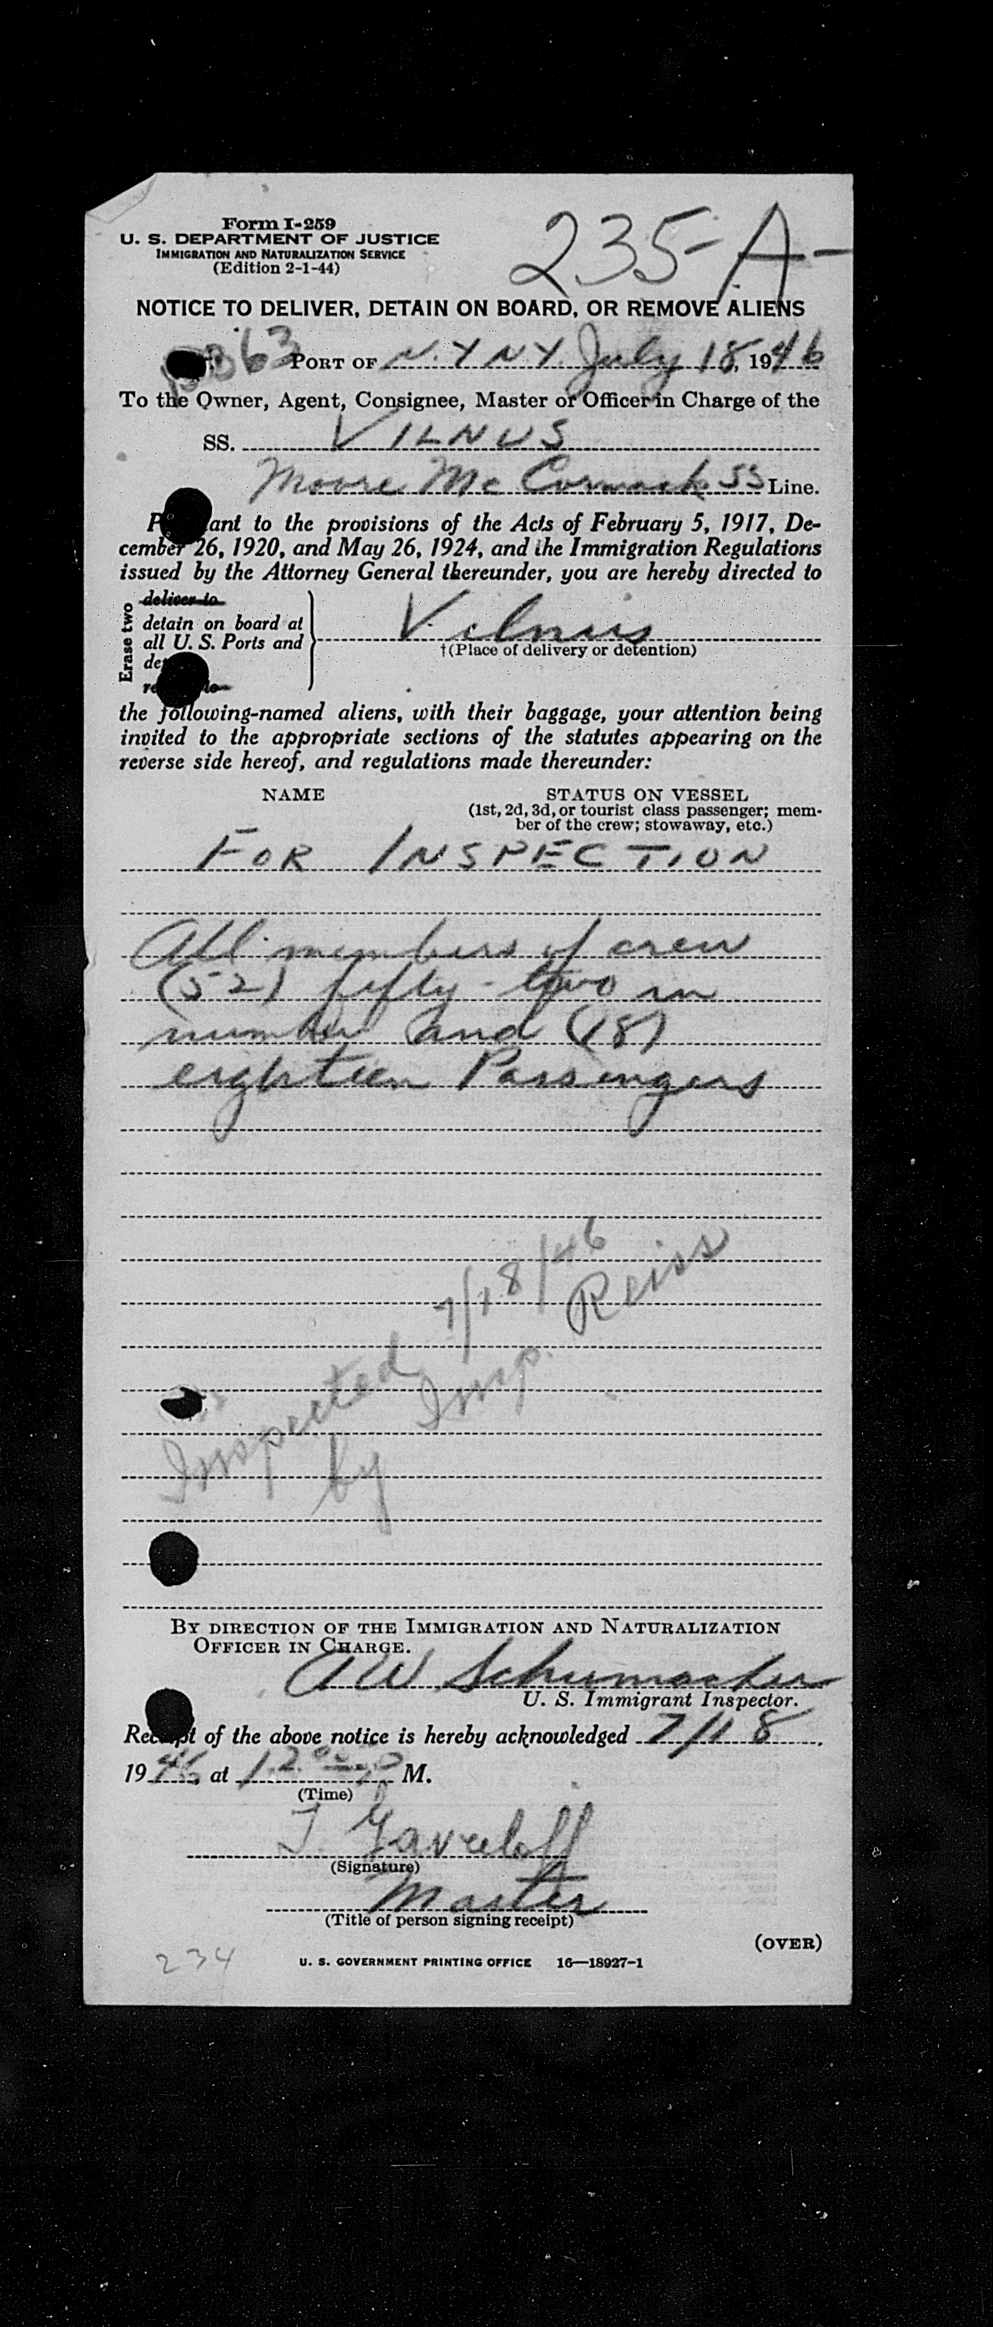 Form I-259
U. S. DEPARTMENT OF JUSTICE
IMMIGRATION AND NATURALIZATION SERVICE
(Edition 2-1-44)
235-A-
NOTICE TO DELIVER, DETAIN ON BOARD, OR REMOVE ALIENS
363 PORT OF N.Y N.Y. July 18, 1946
To the Owner, Agent, Consignee, Master or Officer in Charge of the
SS. VILNUS
Moore Mc Cormack SS Line.
P ant to the provisions of the Acts of February 5, 1917, De-
cember 26, 1920, and May 26, 1924, and the Immigration Regulations
issued by the Attorney General thereunder, you are hereby directed to
Erase two
deliver to
detain on board at
all U. S. Ports and
de
re to
Vilnius
†(Place of delivery or detention)
the following-named aliens, with their baggage, your attention being
invited to the appropriate sections of the statutes appearing on the
reverse side hereof, and regulations made thereunder:
NAME STATUS ON VESSEL
(1st, 2d, 3d, or tourist class passenger; mem-
ber of the crew; stowaway, etc.)
FOR INSPECTION
All members of crew
(52) fifty-two in
number and (18)
eighteen Passengers
Inspected 7/18/46
by Insp. Reiss
BY DIRECTION OF THE IMMIGRATION AND NATURALIZATION
OFFICER IN CHARGE.
A W Schumacher
U. S. Immigrant Inspector.
Receipt of the above notice is hereby acknowledged 7/18,
1946, at 12 00 P M.
(Time)
J. Gavreloff
(Signature)
Master
(Title of person signing receipt)
(OVER)
234
U. S. GOVERNMENT PRINTING OFFICE 16—18927-1